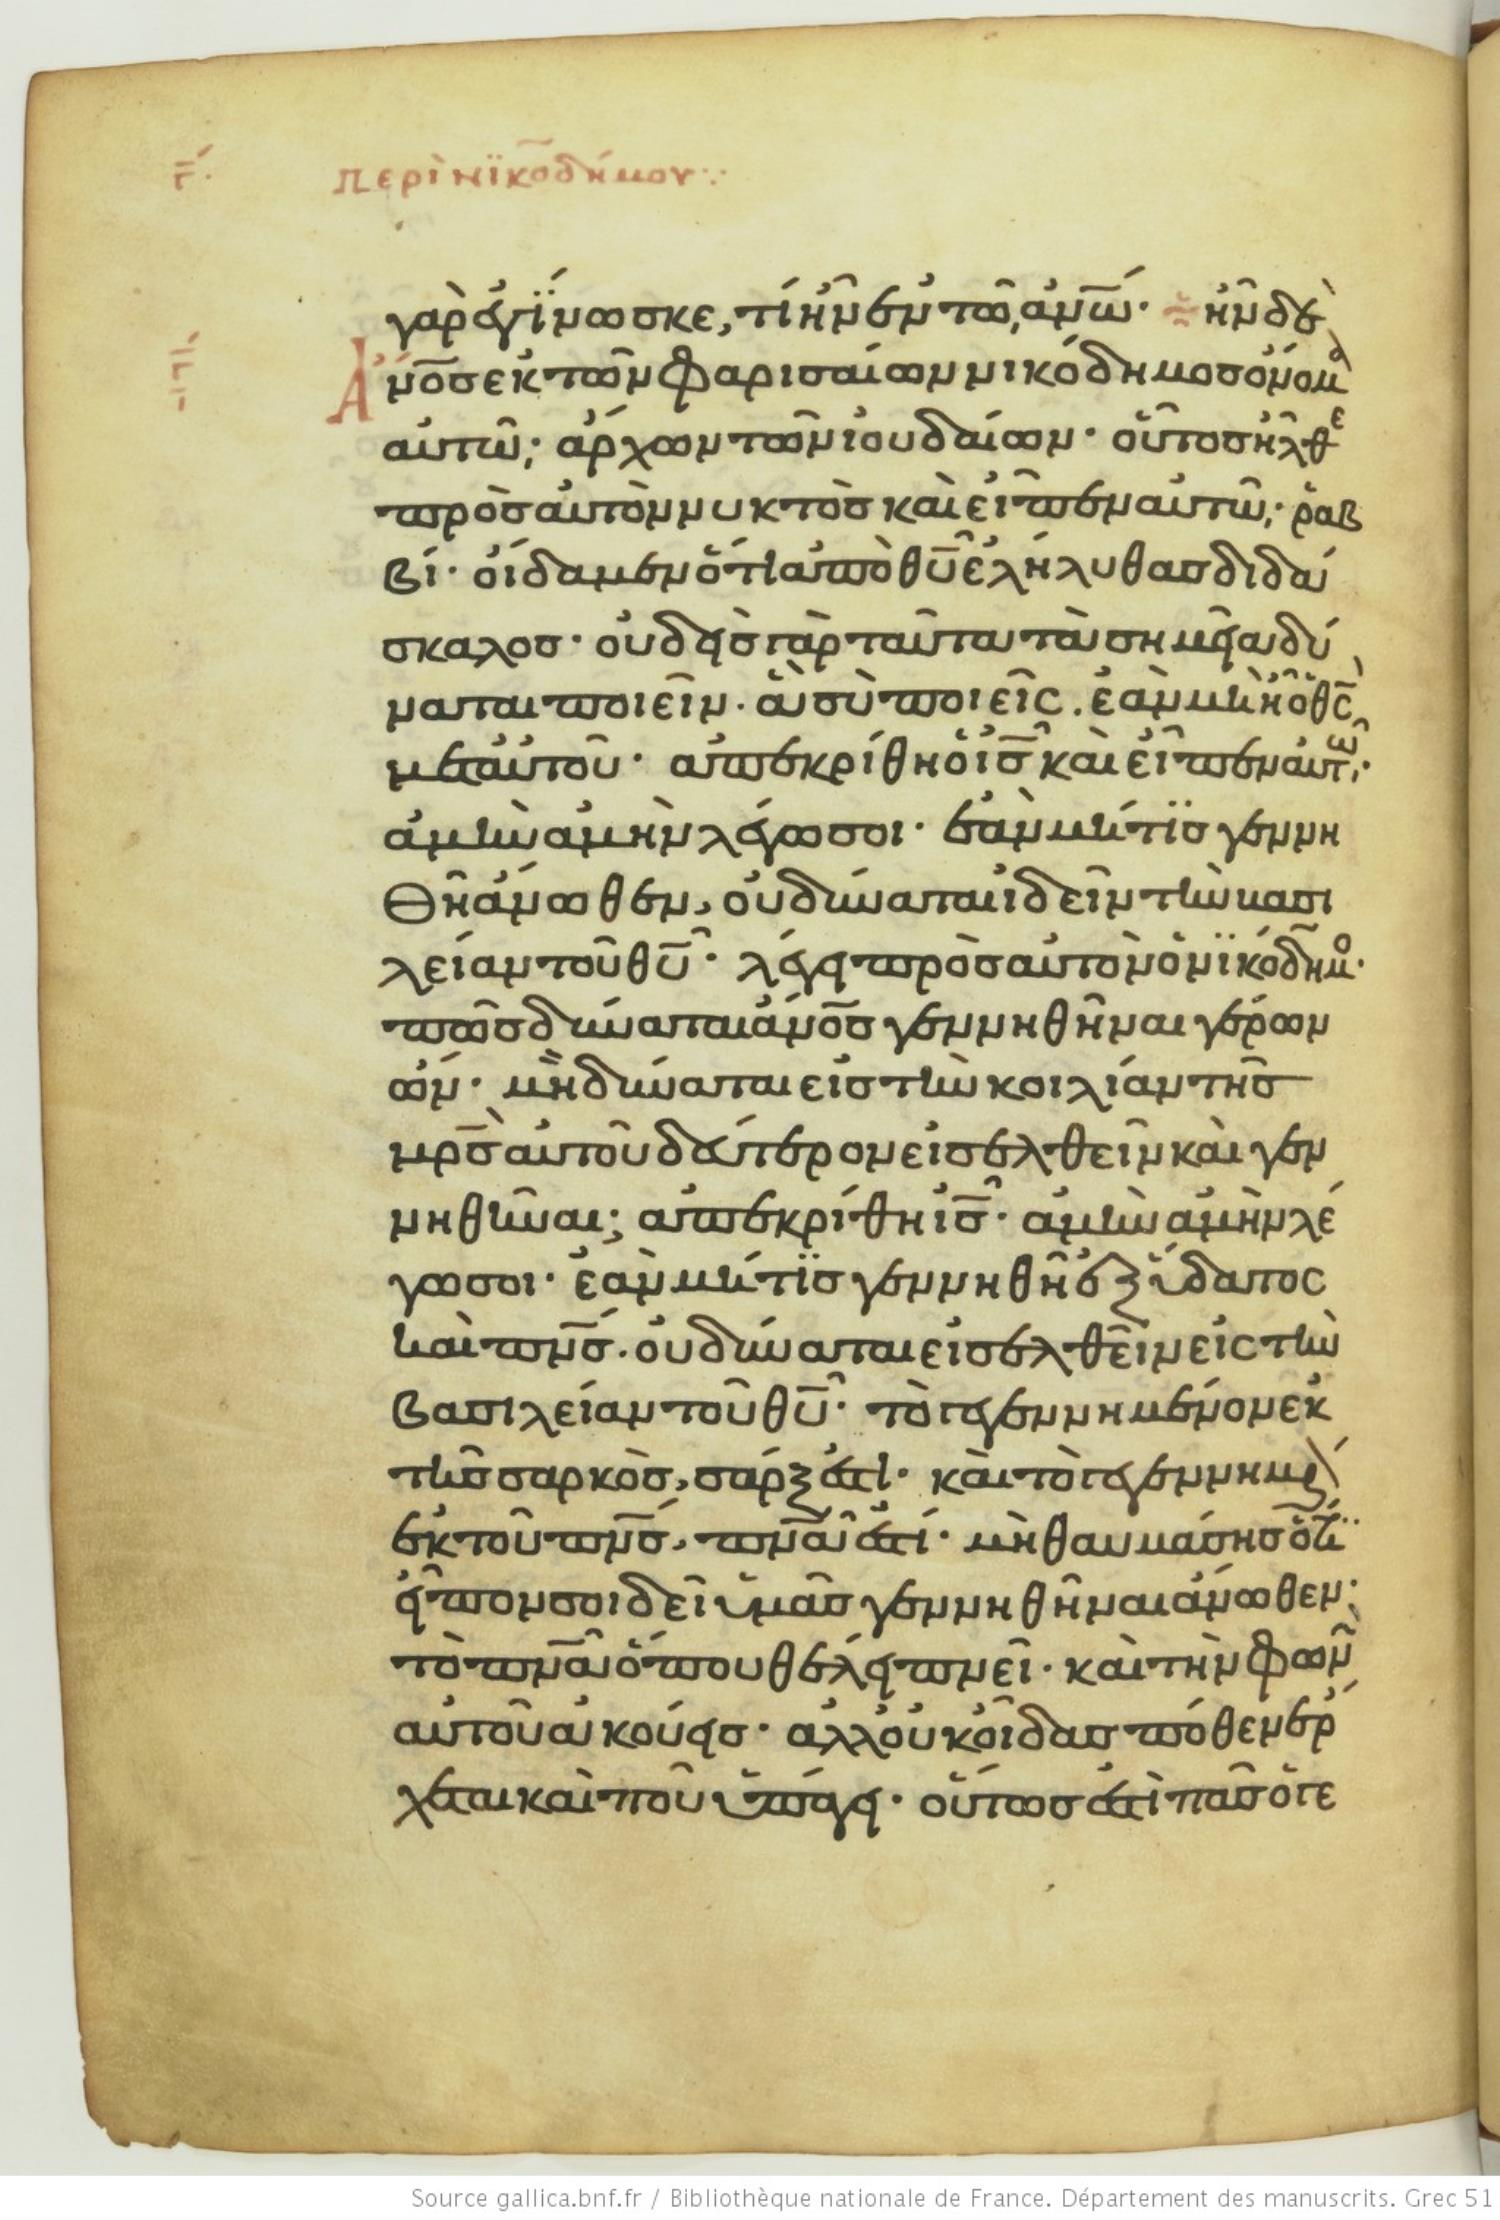 γ̅.
περὶ νϊκοδήμου:·
γὰρ ἐγίνωσκε, τί ἦν ἐν τῶ ἀν̅ω· ἦν δὲ
ἄν̅οσ ἐκ τῶν φαρισαίων νικόδημοσ ὄνομ
αὐτῶ; ἄρχων τῶν ἰουδαίων· οὗτοσ ἦλθε
πρὸσ αὐτὸν νυκτὸσ καὶ εἶπεν αὐτῶ; ῥαβ
βί· οἴδαμεν ὅτι ἀπὸ θ̅υ ἐλήλυθασ διδά
σκαλοσ· οὐδεὶσ γὰρ ταῦτα τὰ σημεῖα δύ
ναται ποιεῖν. ἃ σὺ ποιεῖς. ἐὰν μὴ ἦ ὁ θ̅ς
μετ αὐτοῦ· ἀπεκρίθη ὁ ι̅σ καὶ εἶπεν αὐτῶ;·
ἀμὴν ἀμὴν λέγω σοι· ἐὰν μή τϊσ γεννη
θῆ ἄνωθεν, οὐ δύναται ἰδεῖν τὴν βασι
λείαν τοῦ θ̅υ· λέγει πρὸσ αὐτὸν ὁ νϊκόδημο·
πῶσ δύναται ἄν̅οσ γεννηθῆναι γέρων
ὤν· μὴ δύναται εἰσ τὴν κοιλίαν τῆσ
μ̅ρ̅σ αὐτοῦ δεύτερον εἰσελθεῖν καὶ γεν
νηθῆναι; ἀπεκρίθη ι̅σ· ἀμὴν ἀμὴν λέ
γω σοι· ἐὰν μή τϊσ γεννηθῆ ἐξ ὕδατος
καὶ π̅ν̅σ. οὐ δύναται εἰσελθεῖν εἰς τὴν
βασιλείαν τοῦ θ̅υ· τὸ γεγεννημένον ἐκ
τῆσ σαρκὸσ, σάρξ ἐστι· καὶ τὸ γεγεννημέ
ἐκ τοῦ π̅ν̅σ, π̅ν̅α ἐστί· μὴ θαυμάσησ ὅτι
εἶπον σοι δεῖ ὑμᾶσ γεννηθῆναι ἄνωθεν·
τὸ π̅ν̅α ὅπου θέλει πνεῖ· καὶ τὴν φων
αὐτοῦ ἀκούεισ· ἀλλ οὐκ οἶδασ πόθεν ἔρ
χεται καὶ ποῦ ὑπάγει· οὕτωσ ἐστὶ πᾶσ ὁ γε
Source gallica.bnf.fr / Bibliothèque nationale de France. Département des manuscrits. Grec 51